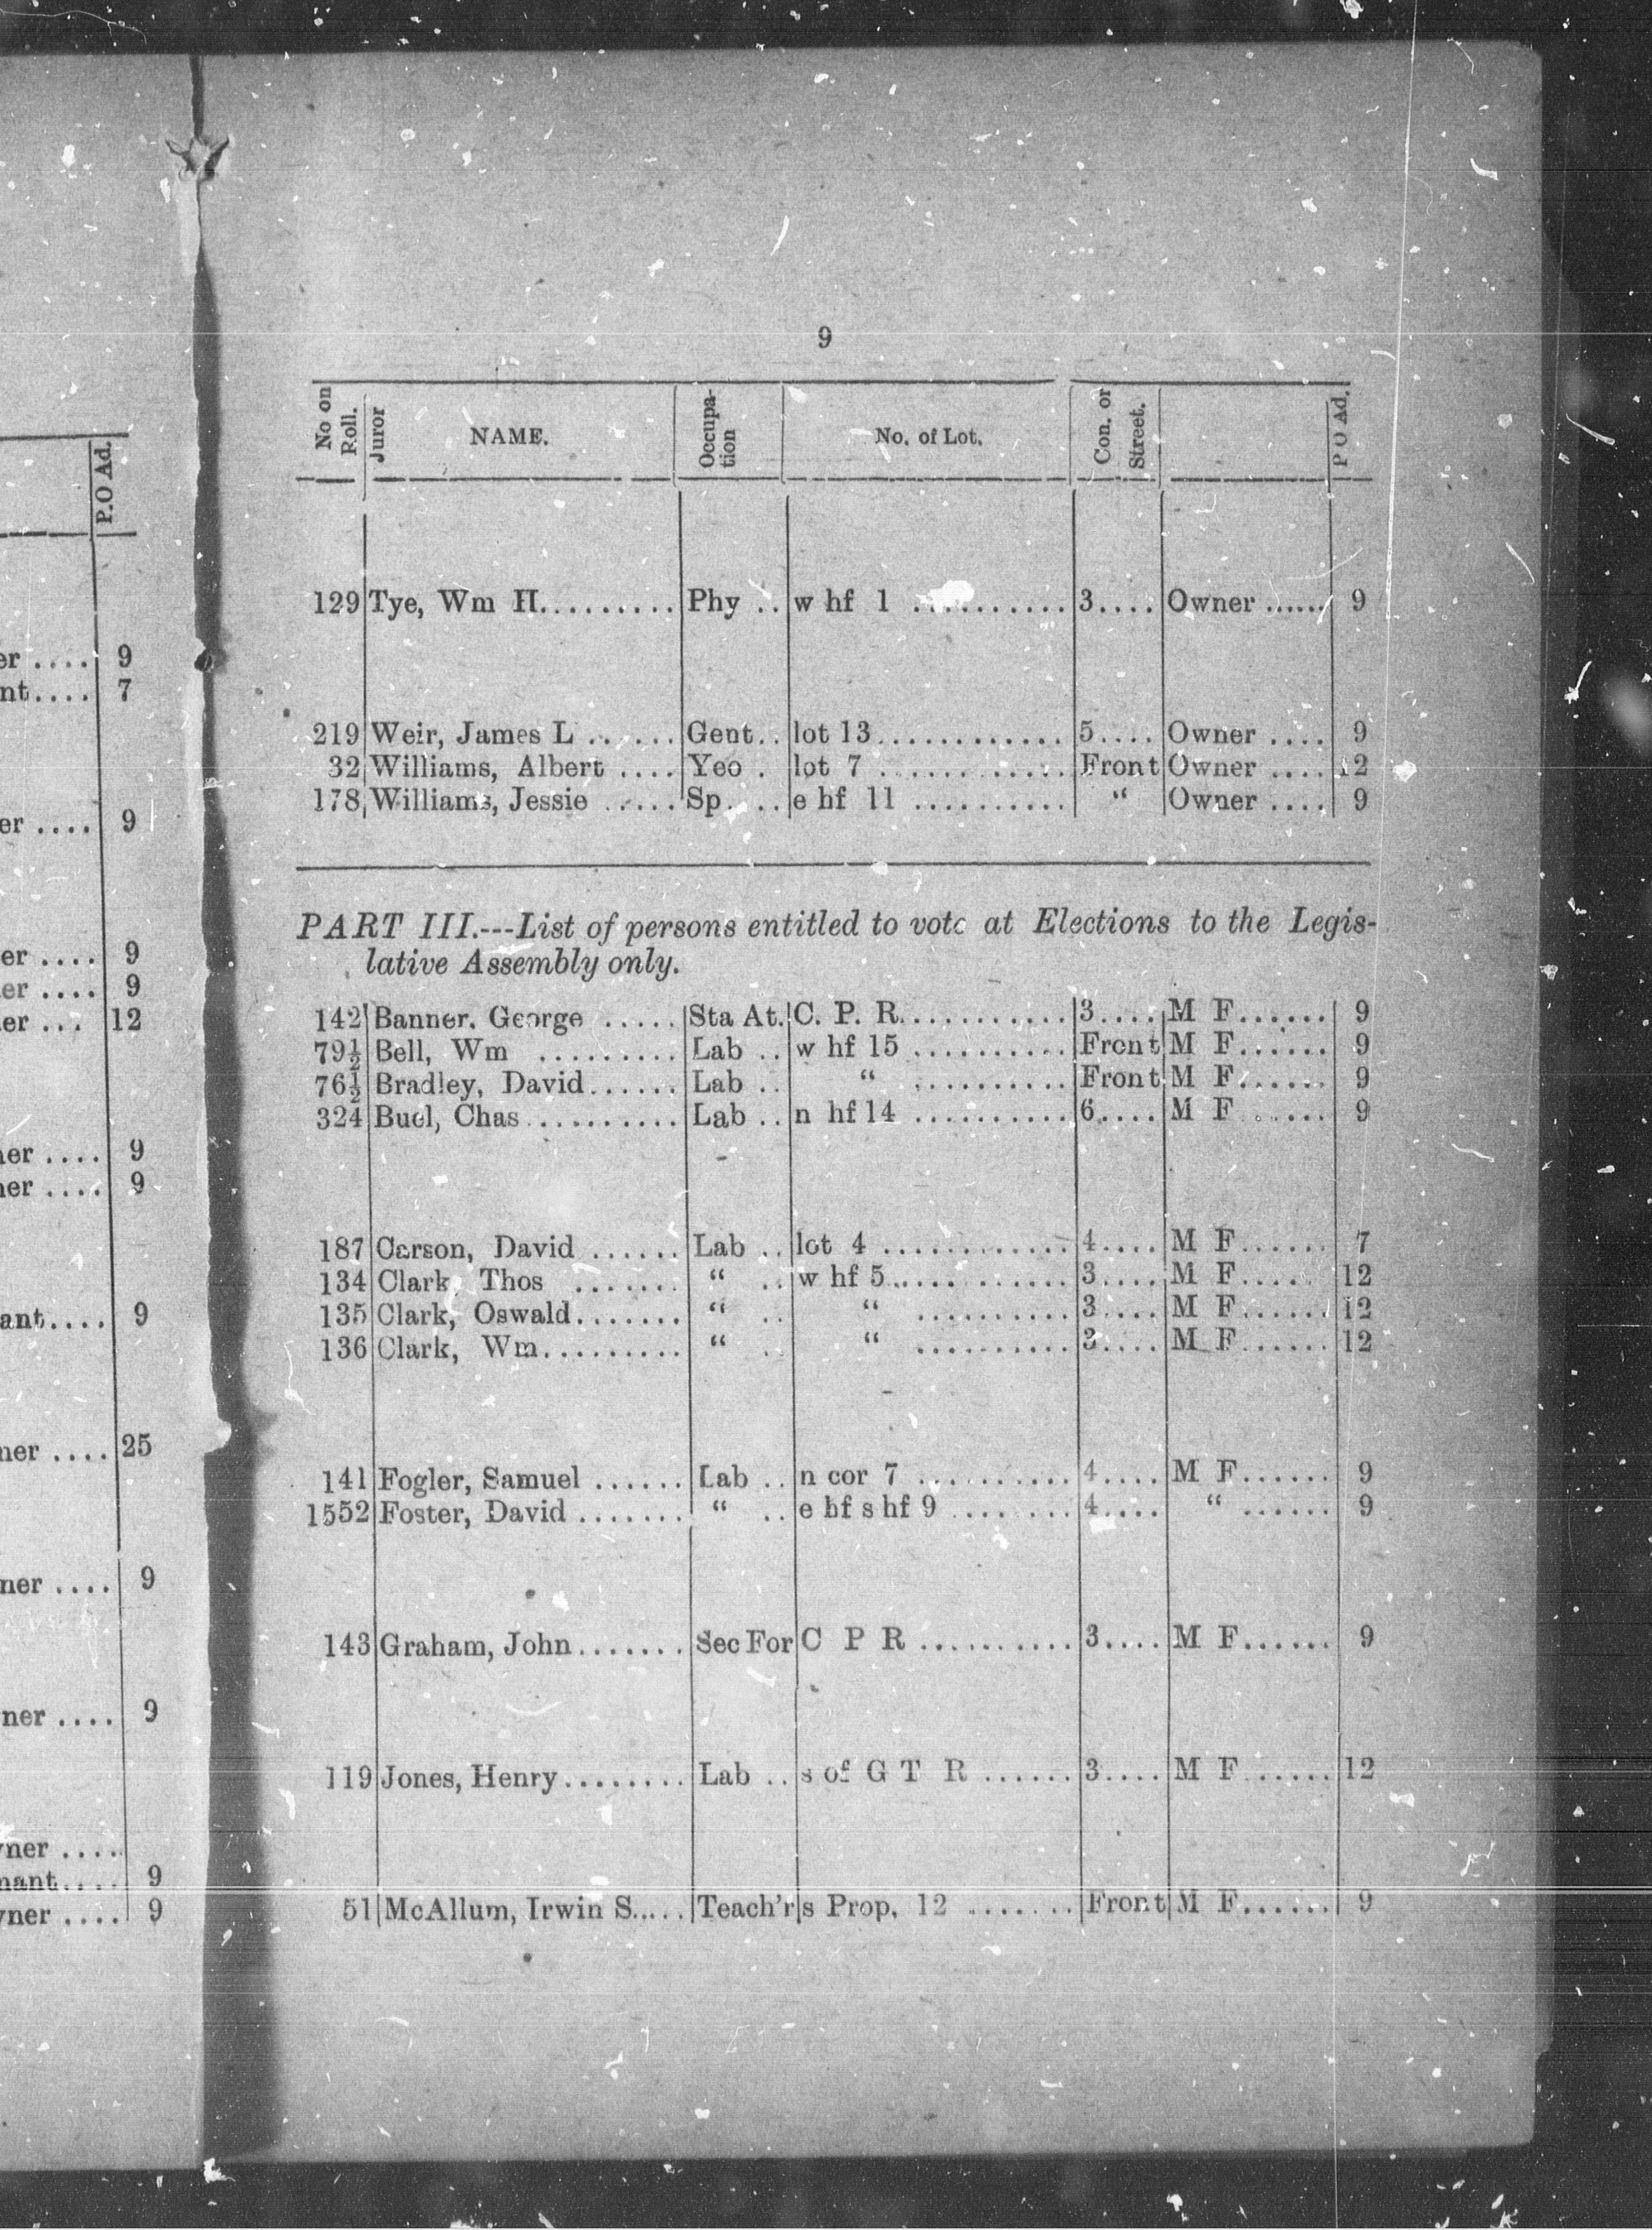 P.O Ad.
er .... 9
nt.... 7
er .... 9
er .... 9
er .... 9
er ... 12
ner .... 9
ner .... 9
ant.... 9
ner .... 25
ner .... 9
ner .... 9
ner ....
nant.... 9
ner .... 9
9
No on Roll. Juror NAME. Occupa-tion No. of Lot. Con. or Street. P O Ad.
129 Tye, Wm H......... Phy .. w hf 1 .......... 3.... Owner ...... 9
219 Weir, James L ...... Gent.. lot 13............ 5.... Owner .... 9
32 Williams, Albert .... Yeo . lot 7 ............ Front Owner .... 12
178 Williams, Jessie ..... Sp. .. e hf 11 .......... “ Owner .... 9
PART III.---List of persons entitled to vote at Elections to the Legis-
lative Assembly only.
142 Banner. George ..... Sta At. C. P. R........... 3.... M F...... 9
79½ Bell, Wm ......... Lab .. w hf 15 .......... Front M F...... 9
76½ Bradley, David...... Lab .. “ .......... Front M F...... 9
324 Buel, Chas.......... Lab .. n hf 14 .......... 6.... M F ...... 9
187 Carson, David ...... Lab .. lot 4 ............ 4.... M F...... 7
134 Clark, Thos ....... “ .. w hf 5............ 3.... M F..... 12
135 Clark, Oswald....... “ .. “ .......... 3.... M F...... 12
136 Clark, Wm......... “ .. “ .......... 3.... M F...... 12
141 Fogler, Samuel ...... Lab .. n cor 7 .......... 4.... M F...... 9
1552 Foster, David ....... “ .. e hf s hf 9 ........ 4.... “ ...... 9
143 Graham, John....... Sec For C P R .......... 3.... M F...... 9
119 Jones, Henry........ Lab .. s of G T R ...... 3.... M F...... 12
51 McAllum, Irwin S..... Teach'r s Prop. 12 ....... Front M F...... 9